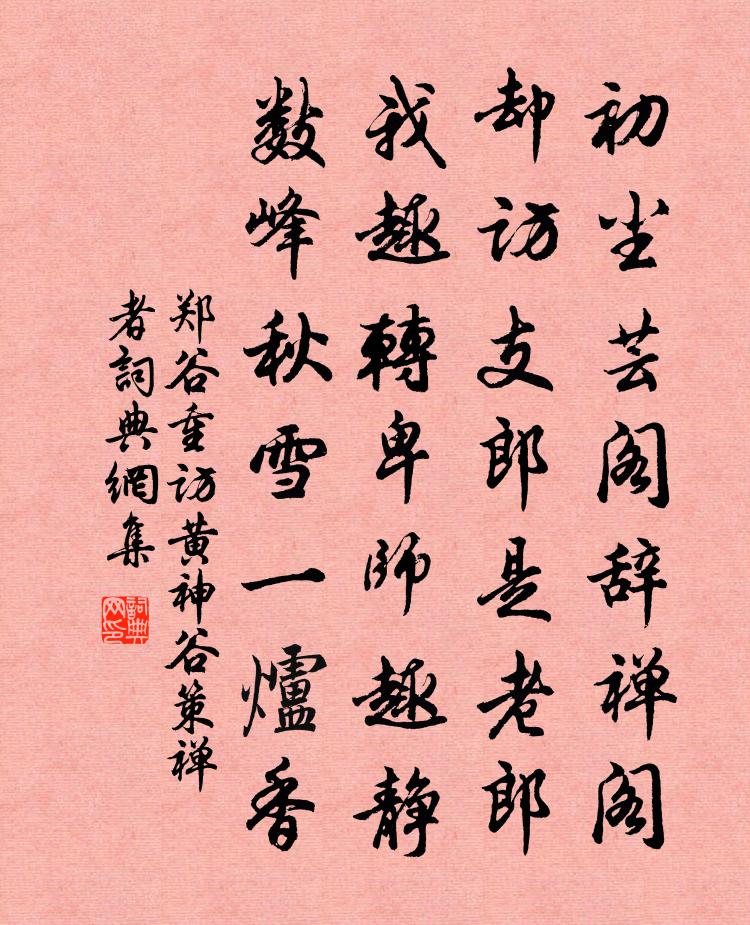 初尘芸阁辞禅阁
却访支郎是老郎
我趣轉卑师趣静
数峰秋雪一爐香
郑谷重访黄神谷策禅
者詞典網集
詞典网印